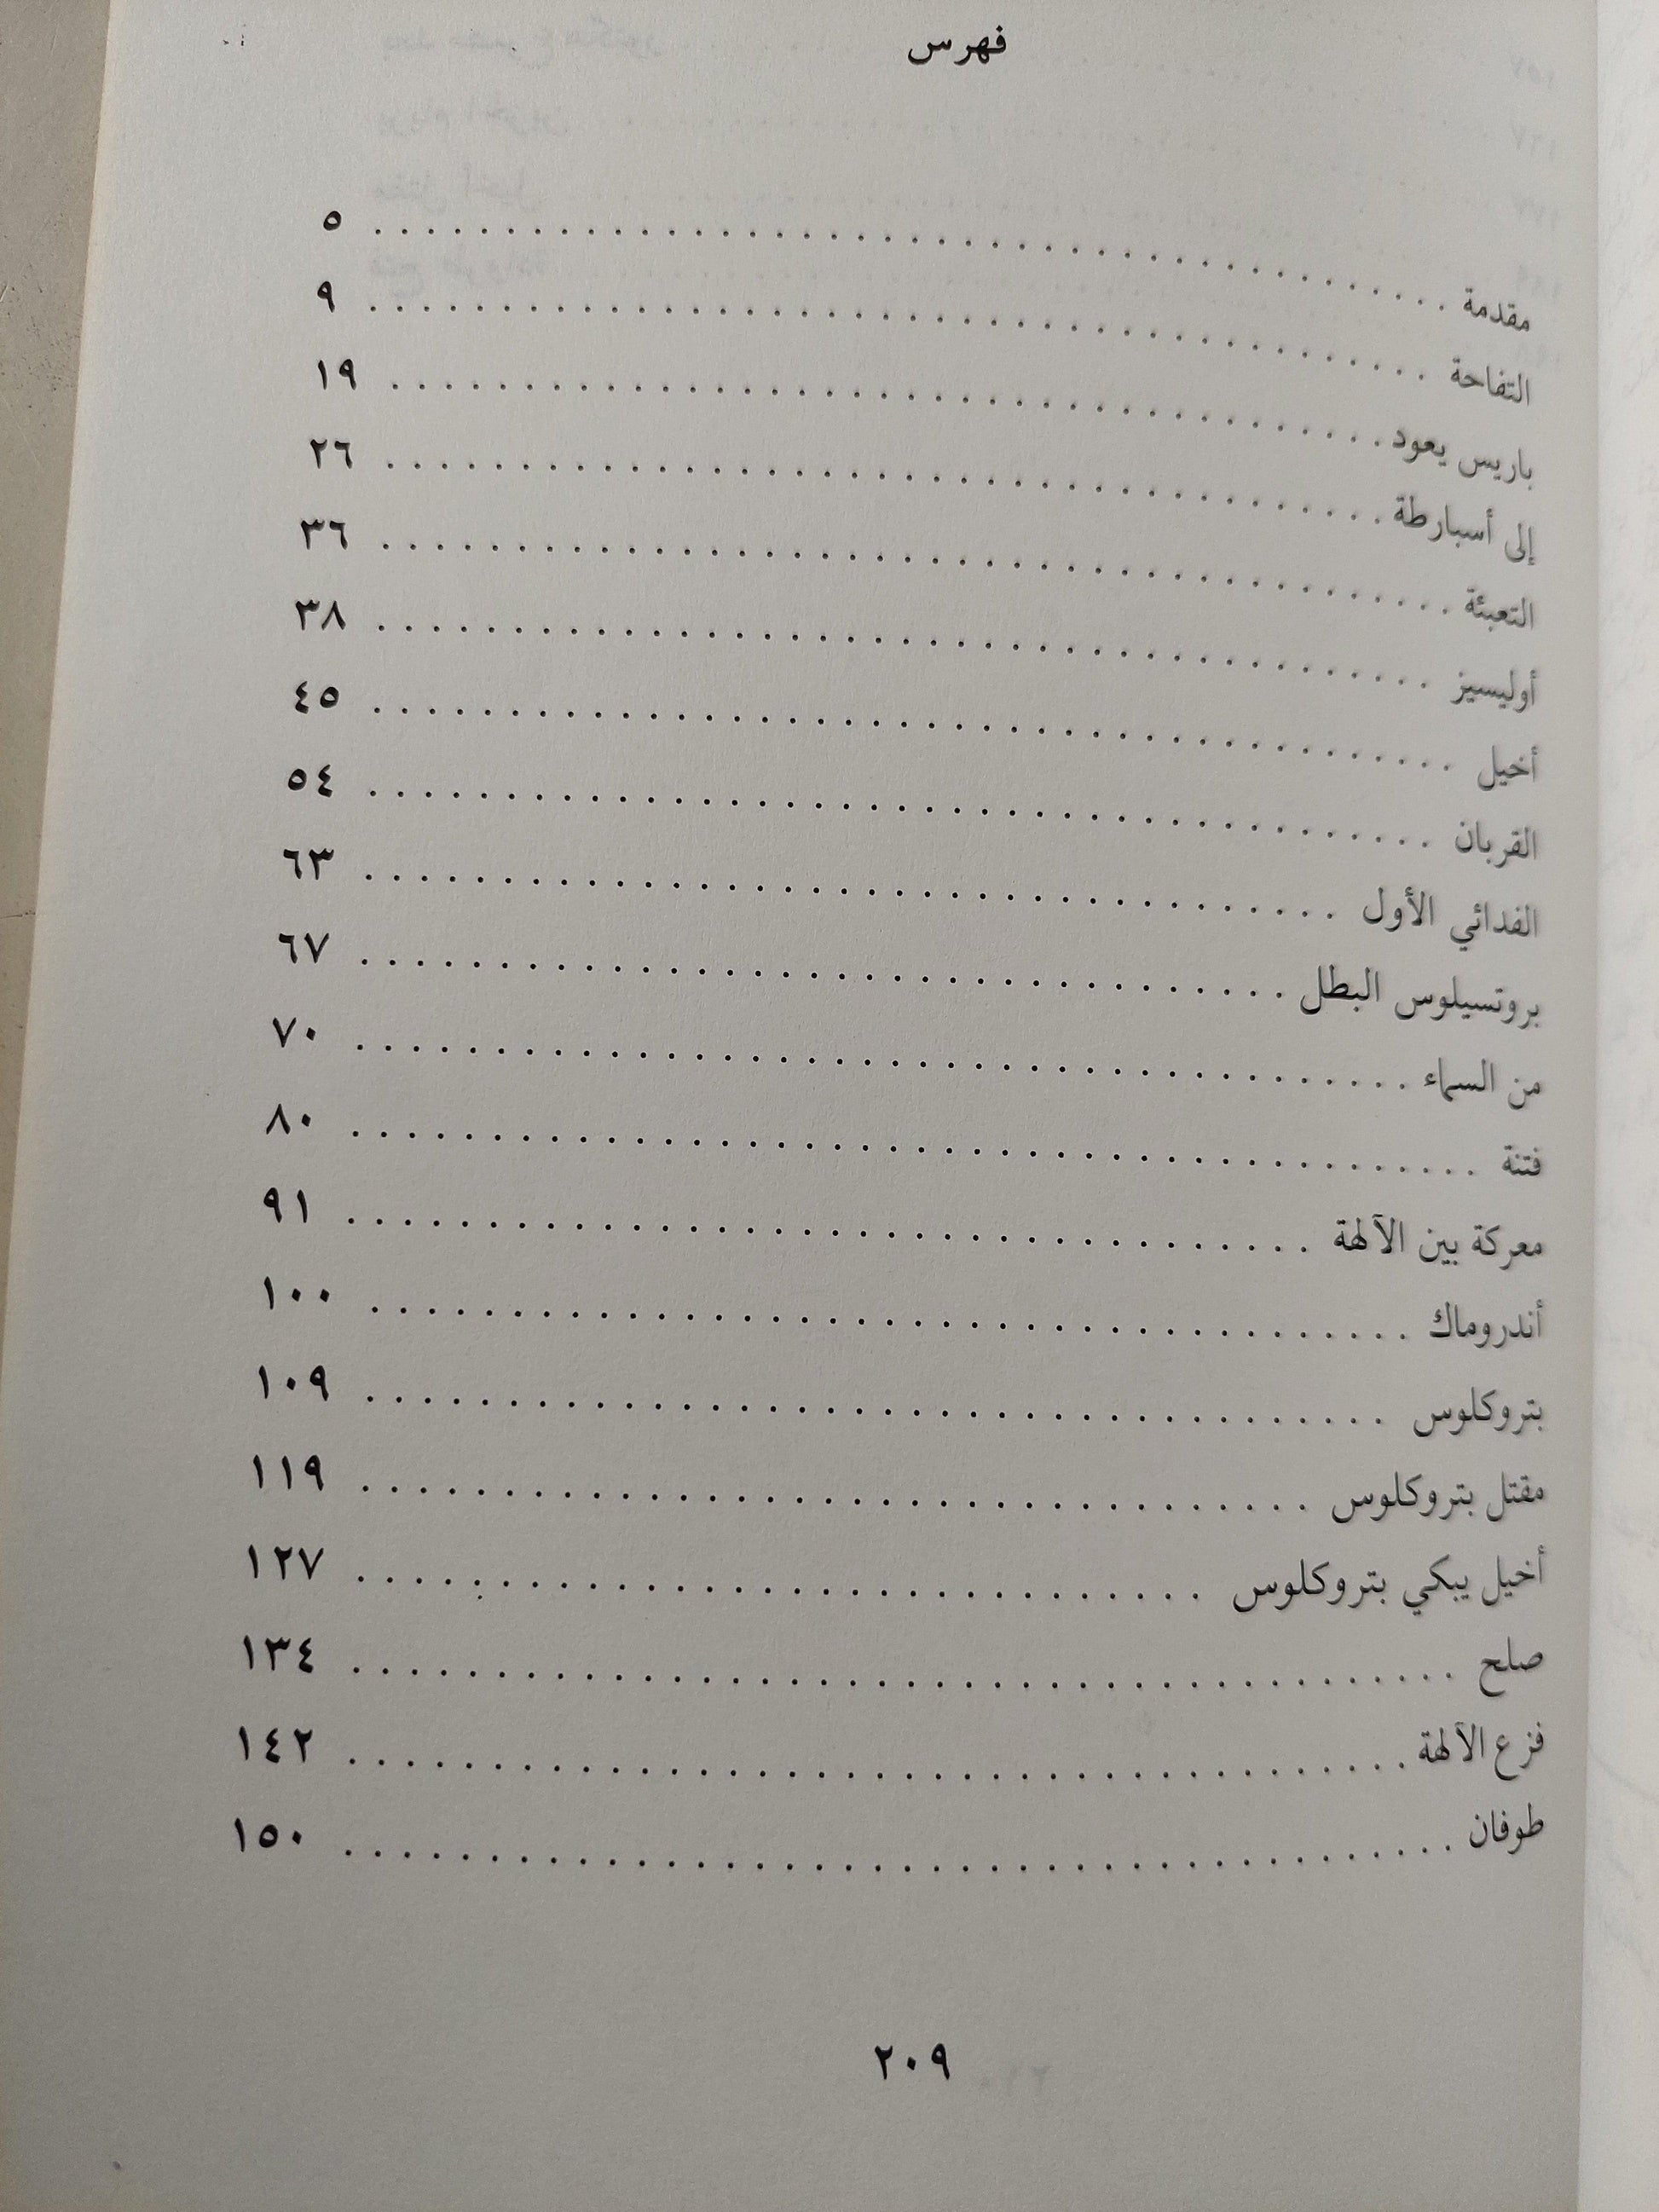 فهرس
مقدمة . . . . . . . . . . . . . . . . . . . . ٥
التفاحة . . . . . . . . . . . . . . . . . . . . ٩
باريس يعود . . . . . . . . . . . . . . . . . . . . ١٩
إلى أسبارطة . . . . . . . . . . . . . . . . . . . . ٢٦
التعبئة . . . . . . . . . . . . . . . . . . . . ٣٦
أوليسيز . . . . . . . . . . . . . . . . . . . . ٣٨
أخيل . . . . . . . . . . . . . . . . . . . . ٤٥
القربان . . . . . . . . . . . . . . . . . . . . ٥٤
الفدائي الأول . . . . . . . . . . . . . . . . . . . . ٦٣
بروتسيلوس البطل . . . . . . . . . . . . . . . . . . . . ٦٧
من السماء . . . . . . . . . . . . . . . . . . . . ٧٠
فتنة . . . . . . . . . . . . . . . . . . . . ٨٠
معركة بين الآلهة . . . . . . . . . . . . . . . . . . . . ٩١
أندروماك . . . . . . . . . . . . . . . . . . . . ١٠٠
بتروكلوس . . . . . . . . . . . . . . . . . . . . ١٠٩
مقتل بتروكلوس . . . . . . . . . . . . . . . . . . . . ١١٩
أخيل يبكي بتروكلوس . . . . . . . . . . . . . . . . . . . . ١٢٧
صلح . . . . . . . . . . . . . . . . . . . . ١٣٤
فزع الآلهة . . . . . . . . . . . . . . . . . . . . ١٤٢
طوفان . . . . . . . . . . . . . . . . . . . . ١٥٠
٢٠٩